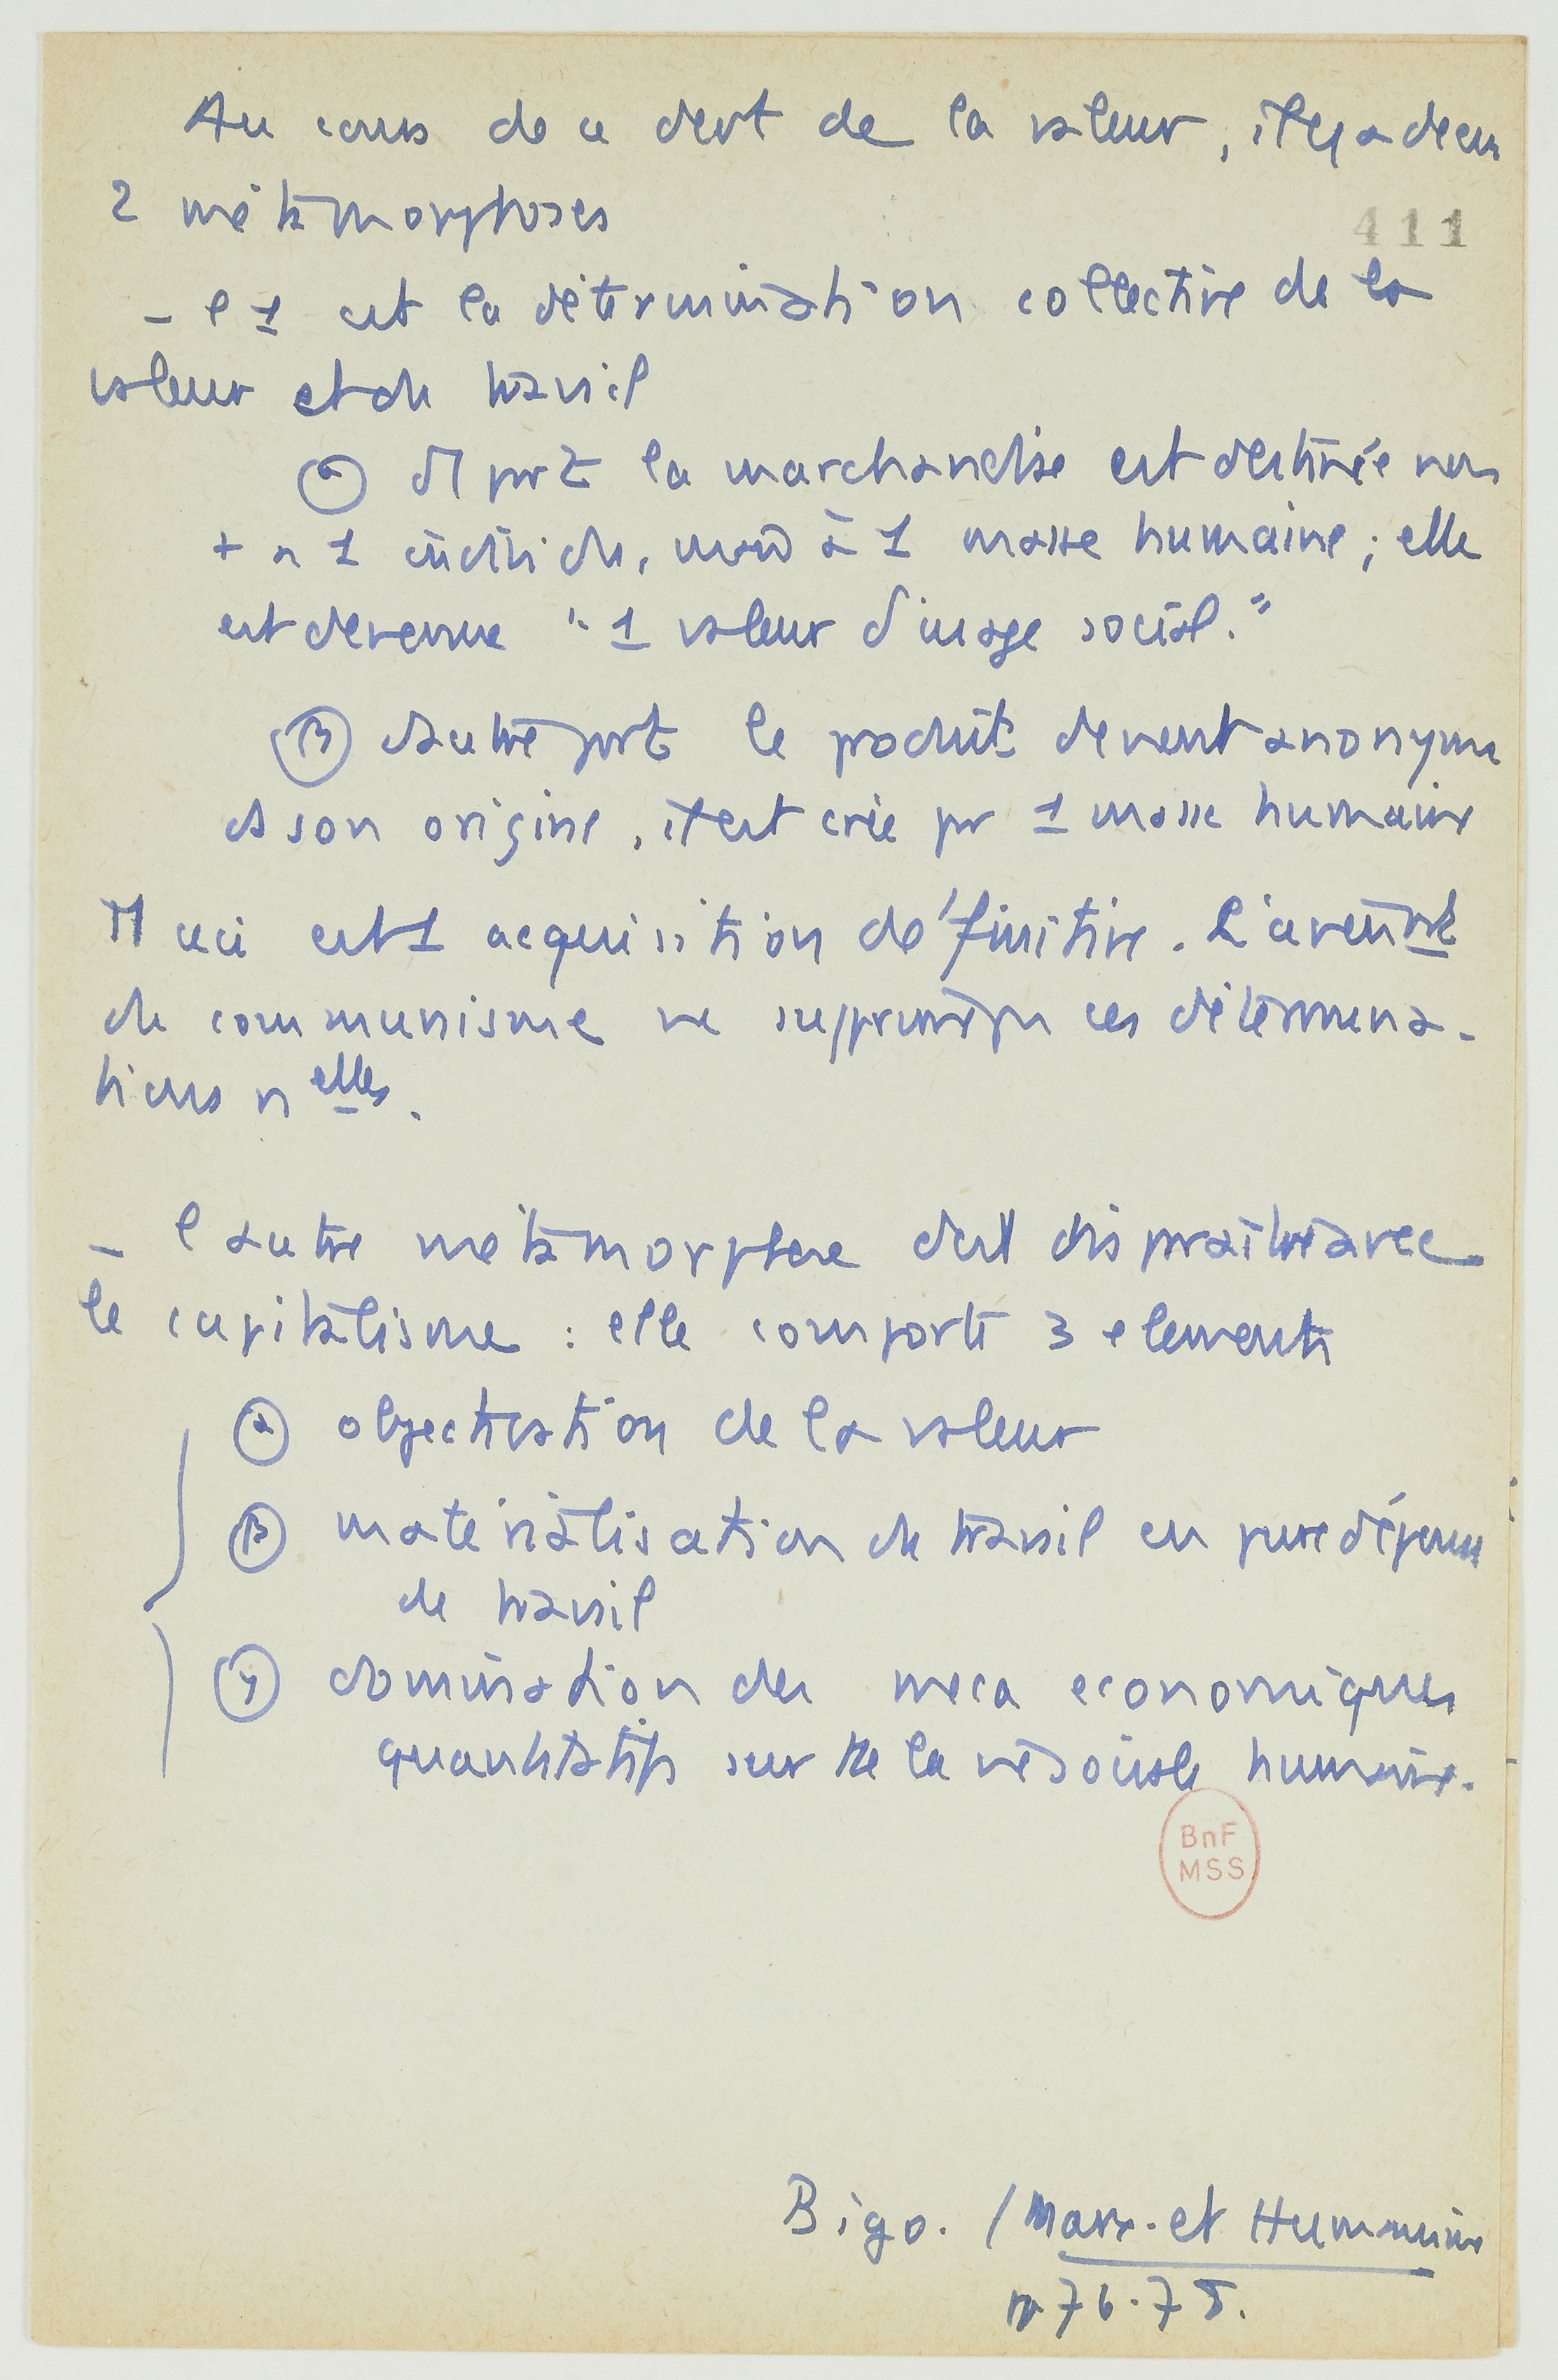 Au cours de ce devt de la valeur, il y a deux
2 métamorphoses
411
- l 1 est la détermination collective de la
valeur et du travail
(α) d 1 part la marchandise est destinée non
+ à 1 individu, mais à 1 masse humaine ; elle
est devenue "1 valeur d'usage social."
(β) d autre part le produit devient anonyme
ds son origine, il est créé par 1 masse humaine
M ceci est 1 acquisition définitive. L'avènemt
du communisme ne supprimera pas ces détermina-
tions nelles.
- l autre métamorphose doit disparaître avec
le capitalisme : elle comporte 3 elements
(α) objectivation de la valeur
(β) matérialisation du travail en pure dépense
de travail
(γ) domination des meca economiques
quantitatifs sur tte la vie sociale humaine.
BnF
MSS
Bigo. / Marx. et Humanisme
pp 76-78.